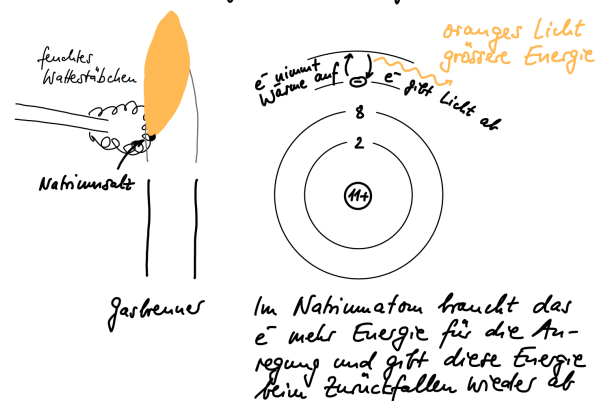 feuchtes
Wattestäbchen
Natriumsalz
Gasbrenner
oranges Licht
grössere Energie
e⁻ nimmt
Wärme auf
e⁻ gibt Licht ab
−
8
2
11+
Im Natriumatom braucht das
e⁻ mehr Energie für die An-
regung und gibt diese Energie
beim Zurückfallen wieder ab